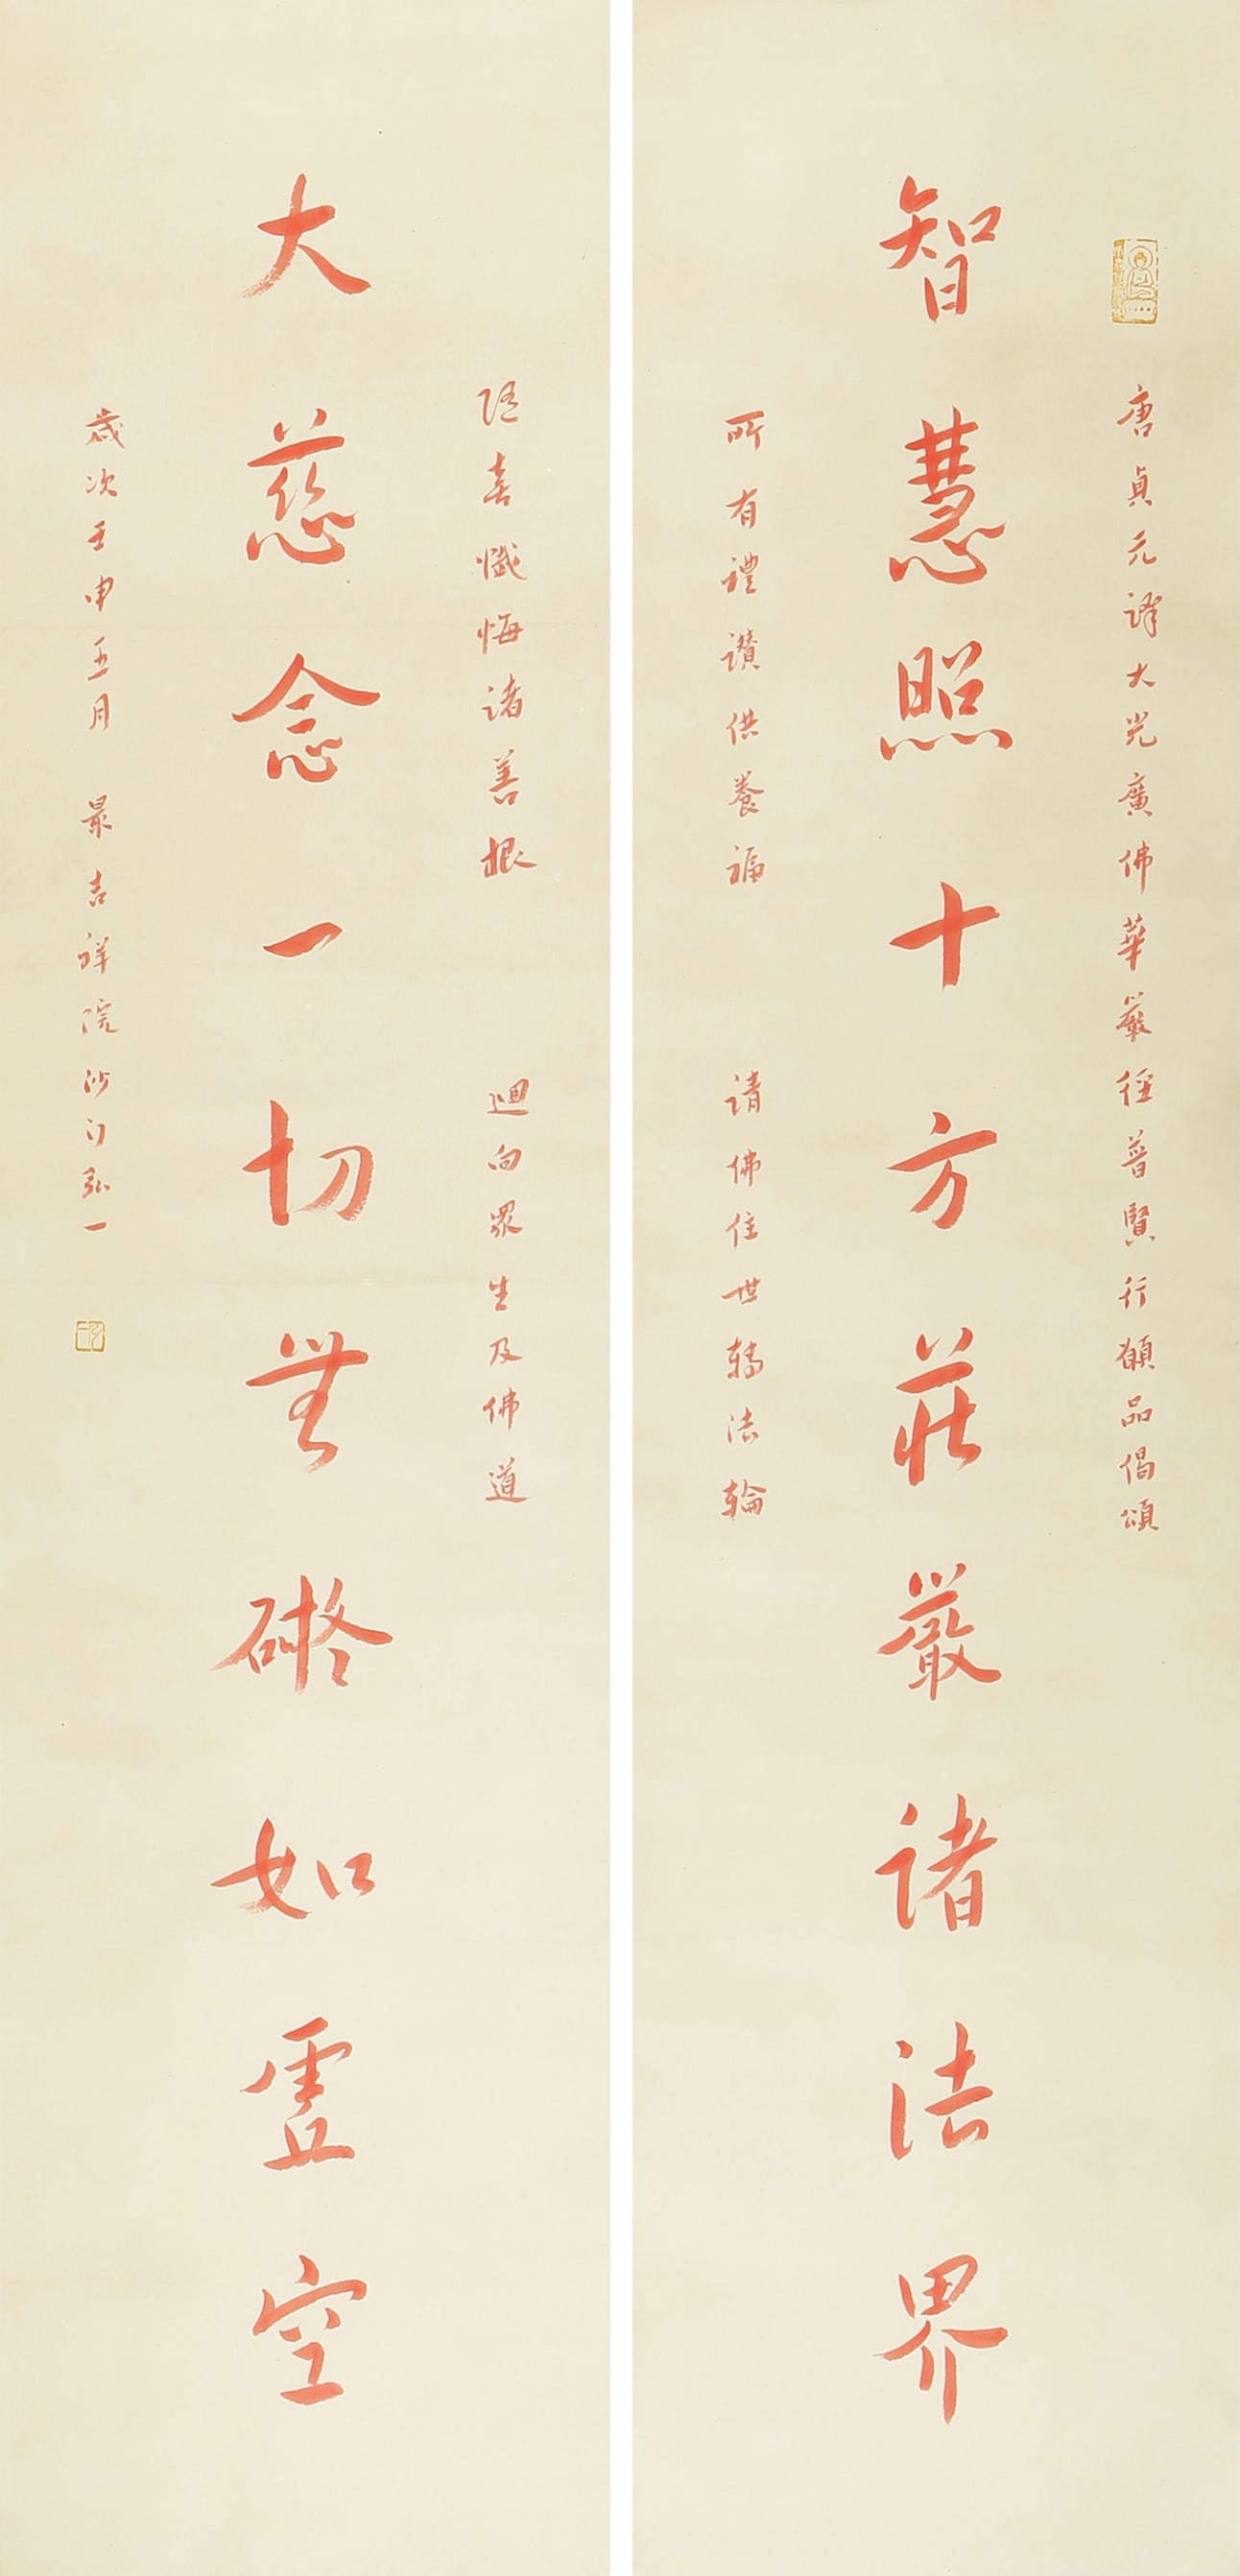 唐貞元譯大方廣佛華嚴經普賢行願品偈頌
智慧照十方莊嚴諸法界
所有禮讚供養福 請佛住世轉法輪
隨喜懺悔諸善根 迴向眾生及佛道
大慈念一切無礙如虛空
歲次壬申五月 最吉祥院沙門弘一